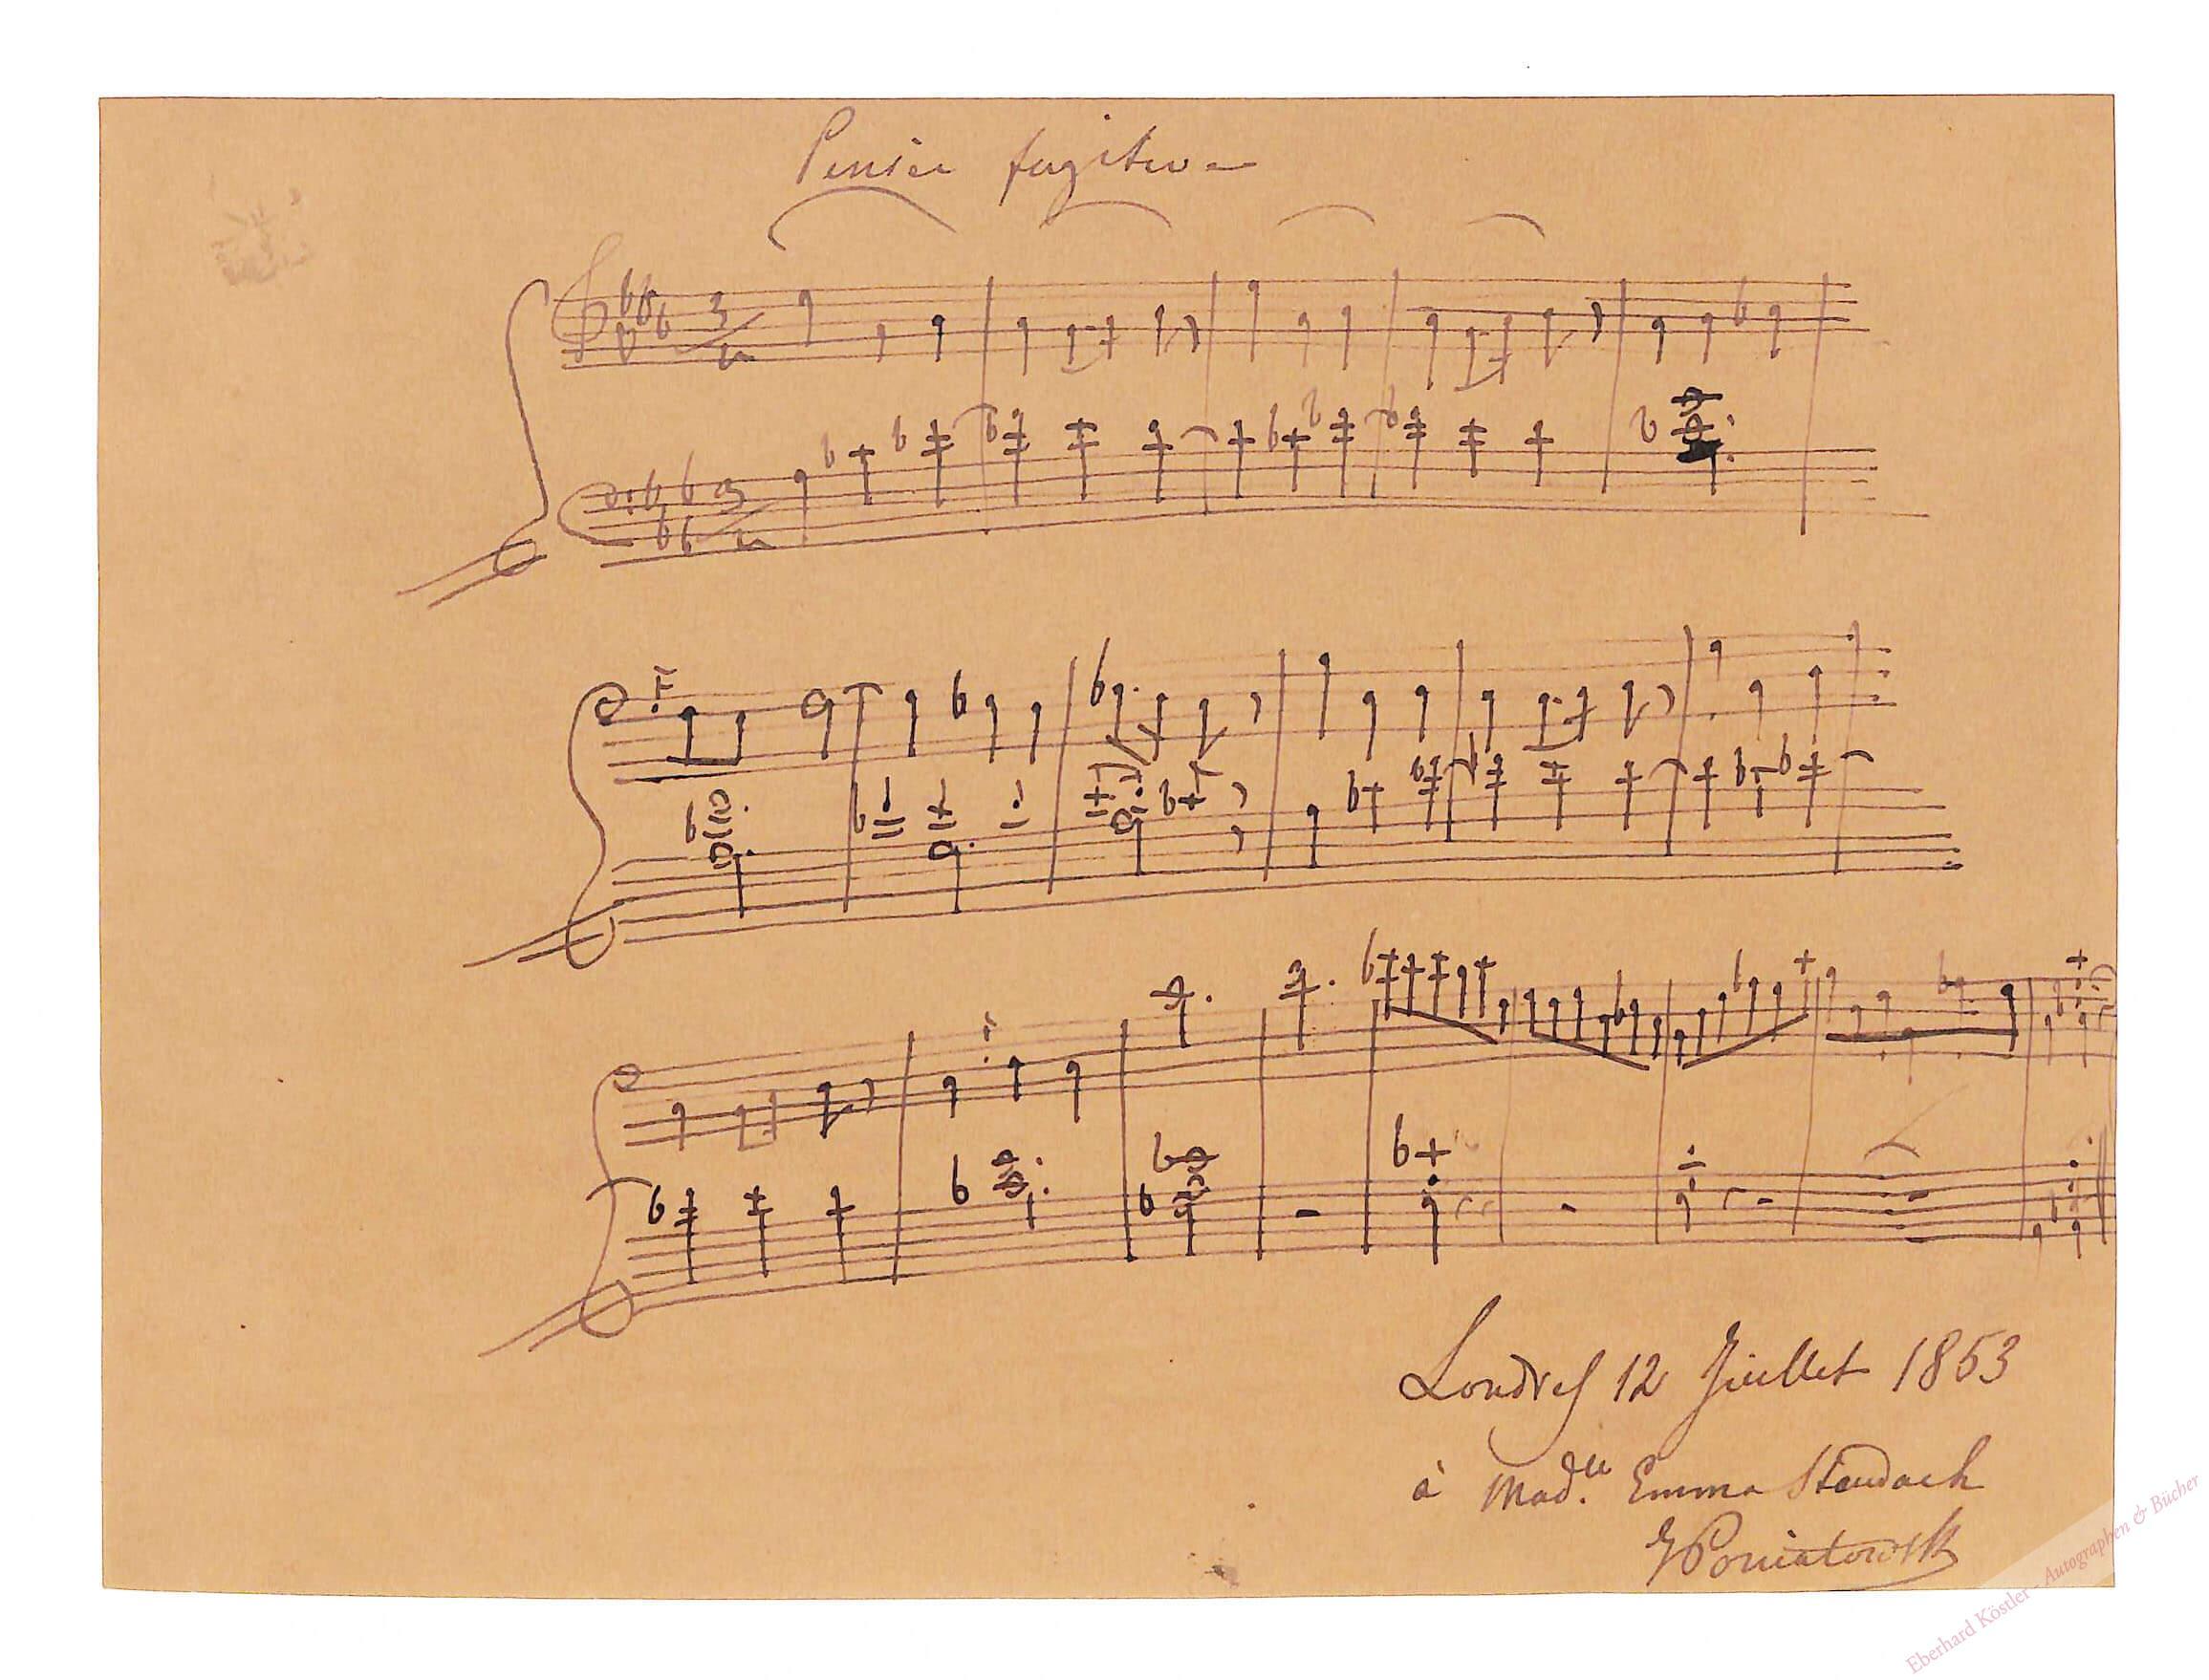 Pensée fugitive
Londres 12 Juillet 1853
à Mad.lle Emma Staudach
JPoniatowski
Eberhard Köstler - Autographen & Bücher